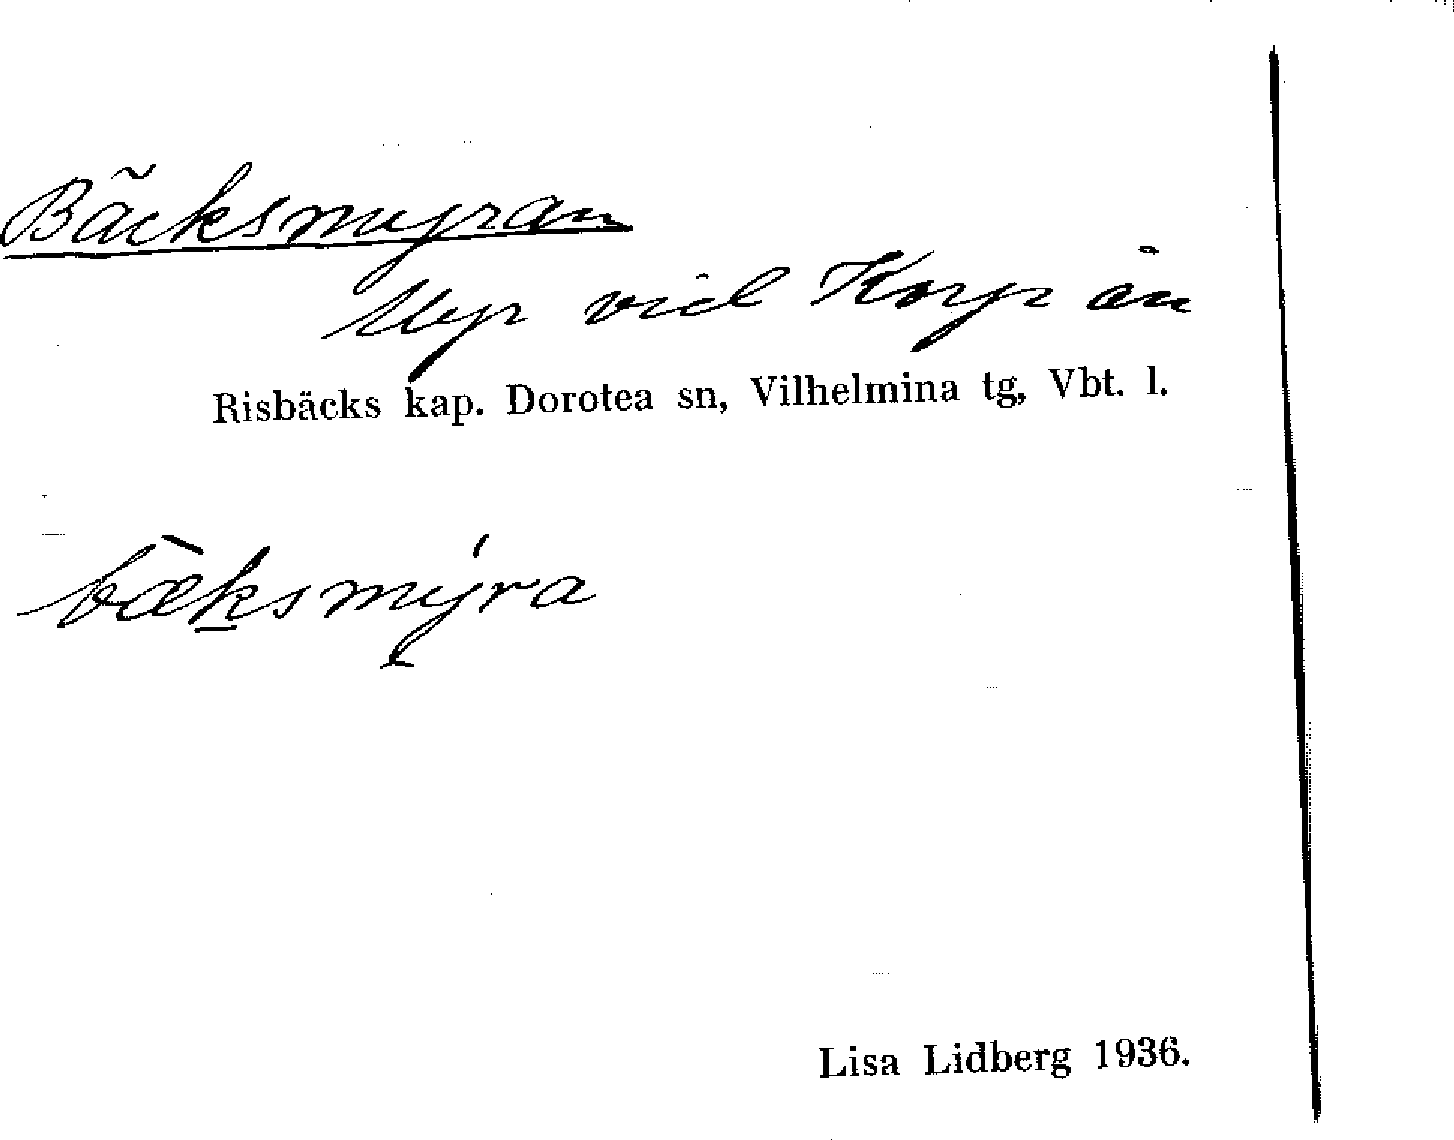 Bäcksmyran
Myr vid Korpån
Risbäcks kap. Dorotea sn, Vilhelmina tg, Vbt. l.
bæ̀ksmýra
Lisa Lidberg 1936.